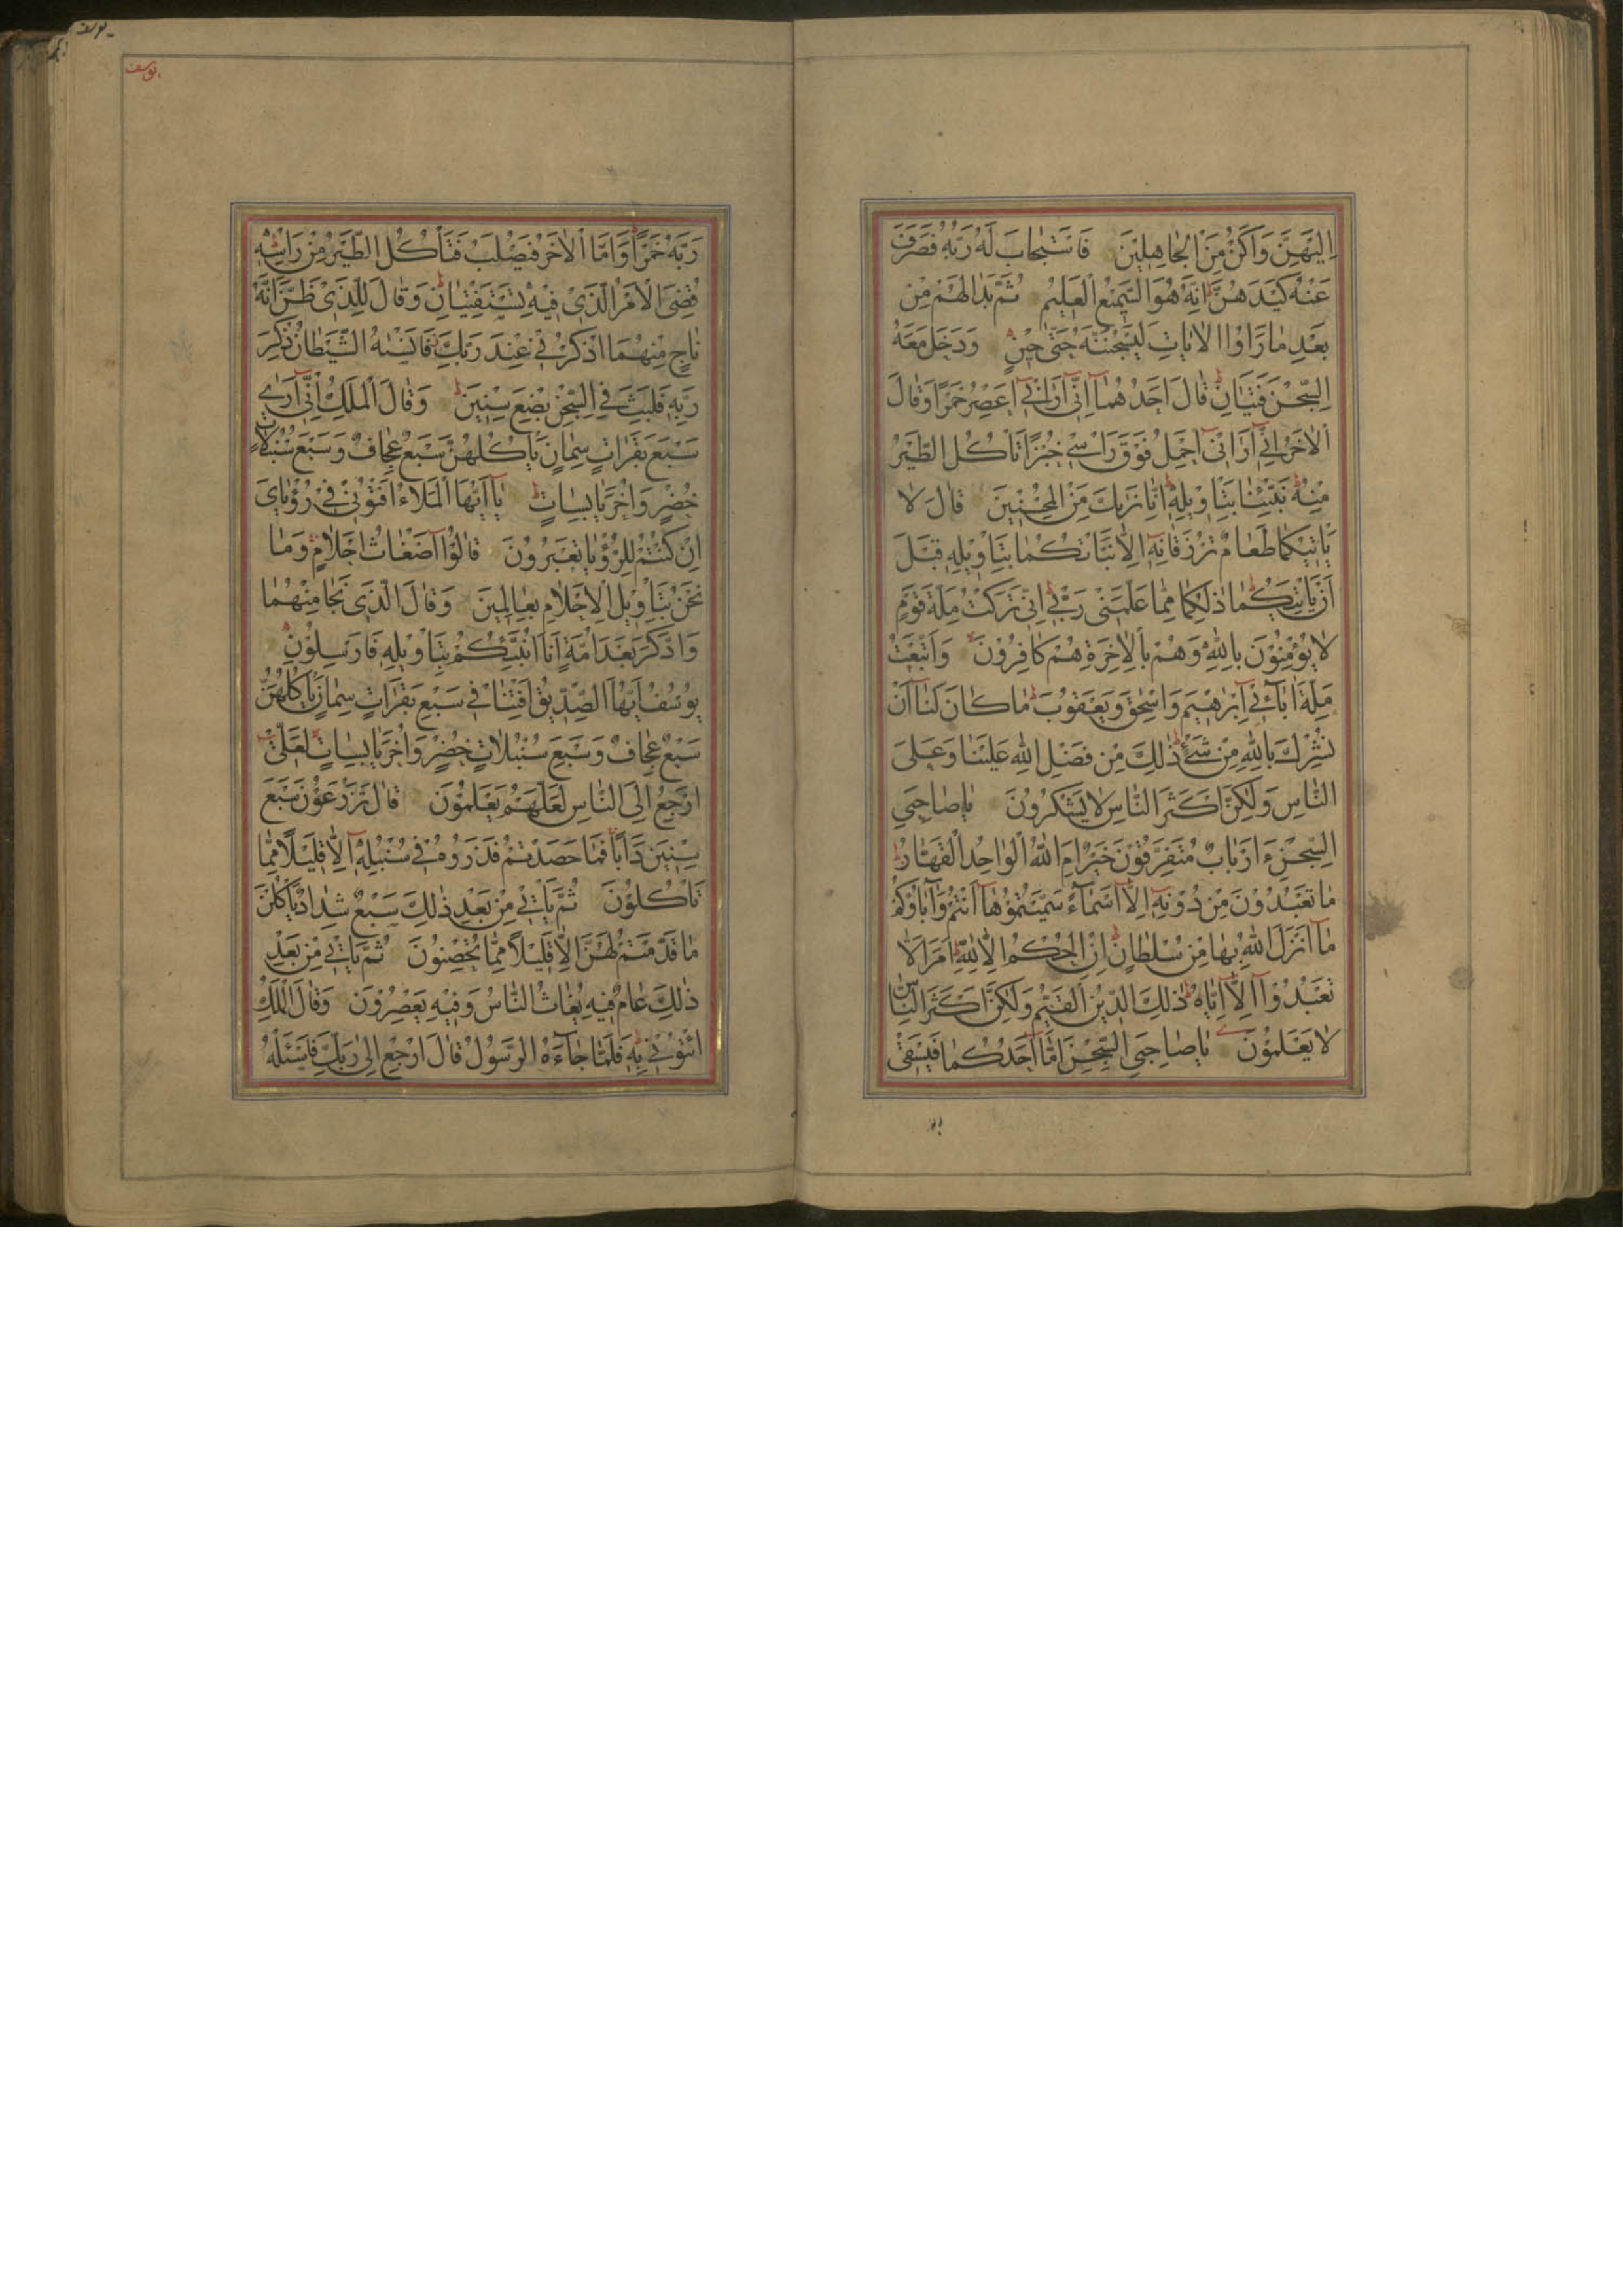 اِلَيْهِنَّ وَاَكُنْ مِنَ الْجَاهِلِينَ فَاسْتَجَابَ لَهُ رَبُّهُ فَصَرَفَ
عَنْهُ كَيْدَهُنَّ اِنَّهُ هُوَ السَّمِيعُ الْعَلِيمُ ثُمَّ بَدَا لَهُمْ مِنْ
بَعْدِ مَا رَاَوُا الْاٰيَاتِ لَيَسْجُنُنَّهُ حَتّٰى حِينٍ وَدَخَلَ مَعَهُ
السِّجْنَ فَتَيَانِ قَالَ اَحَدُهُمَا اِنِّي اَرَانِي اَعْصِرُ خَمْرًا وَقَالَ
الْاٰخَرُ اِنِّي اَرَانِي اَحْمِلُ فَوْقَ رَاْسِي خُبْزًا تَاْكُلُ الطَّيْرُ
مِنْهُ نَبِّئْنَا بِتَاْوِيلِهِ اِنَّا نَرٰيكَ مِنَ الْمُحْسِنِينَ قَالَ لَا
يَاْتِيكُمَا طَعَامٌ تُرْزَقَانِهِ اِلَّا نَبَّاْتُكُمَا بِتَاْوِيلِهِ قَبْلَ
اَنْ يَاْتِيَكُمَا ذٰلِكُمَا مِمَّا عَلَّمَنِي رَبِّي اِنِّي تَرَكْتُ مِلَّةَ قَوْمٍ
لَا يُؤْمِنُونَ بِاللّٰهِ وَهُمْ بِالْاٰخِرَةِ هُمْ كَافِرُونَ وَاتَّبَعْتُ
مِلَّةَ اٰبَائِي اِبْرٰهِيمَ وَاِسْحٰقَ وَيَعْقُوبَ مَا كَانَ لَنَا اَنْ
نُشْرِكَ بِاللّٰهِ مِنْ شَيْءٍ ذٰلِكَ مِنْ فَضْلِ اللّٰهِ عَلَيْنَا وَعَلَى
النَّاسِ وَلٰكِنَّ اَكْثَرَ النَّاسِ لَا يَشْكُرُونَ يَا صَاحِبَيِ
السِّجْنِ ءَاَرْبَابٌ مُتَفَرِّقُونَ خَيْرٌ اَمِ اللّٰهُ الْوَاحِدُ الْقَهَّارُ
مَا تَعْبُدُونَ مِنْ دُونِهِ اِلَّا اَسْمَاءً سَمَّيْتُمُوهَا اَنْتُمْ وَاٰبَاؤُكُمْ
مَا اَنْزَلَ اللّٰهُ بِهَا مِنْ سُلْطَانٍ اِنِ الْحُكْمُ اِلَّا لِلّٰهِ اَمَرَ اَلَّا
تَعْبُدُوا اِلَّا اِيَّاهُ ذٰلِكَ الدِّينُ الْقَيِّمُ وَلٰكِنَّ اَكْثَرَ النَّاسِ
لَا يَعْلَمُونَ يَا صَاحِبَيِ السِّجْنِ اَمَّا اَحَدُكُمَا فَيَسْقِي
يوسف
رَبَّهُ خَمْرًا وَاَمَّا الْاٰخَرُ فَيُصْلَبُ فَتَاْكُلُ الطَّيْرُ مِنْ رَاْسِهِ
قُضِيَ الْاَمْرُ الَّذِي فِيهِ تَسْتَفْتِيَانِ وَقَالَ لِلَّذِي ظَنَّ اَنَّهُ
نَاجٍ مِنْهُمَا اذْكُرْنِي عِنْدَ رَبِّكَ فَاَنْسٰيهُ الشَّيْطَانُ ذِكْرَ
رَبِّهِ فَلَبِثَ فِي السِّجْنِ بِضْعَ سِنِينَ وَقَالَ الْمَلِكُ اِنِّي اَرٰى
سَبْعَ بَقَرَاتٍ سِمَانٍ يَاْكُلُهُنَّ سَبْعٌ عِجَافٌ وَسَبْعَ سُنْبُلَاتٍ
خُضْرٍ وَاُخَرَ يَابِسَاتٍ يَا اَيُّهَا الْمَلَاُ اَفْتُونِي فِي رُؤْيَايَ
اِنْ كُنْتُمْ لِلرُّؤْيَا تَعْبُرُونَ قَالُوا اَضْغَاثُ اَحْلَامٍ وَمَا
نَحْنُ بِتَاْوِيلِ الْاَحْلَامِ بِعَالِمِينَ وَقَالَ الَّذِي نَجَا مِنْهُمَا
وَادَّكَرَ بَعْدَ اُمَّةٍ اَنَا اُنَبِّئُكُمْ بِتَاْوِيلِهِ فَاَرْسِلُونِ
يُوسُفُ اَيُّهَا الصِّدِّيقُ اَفْتِنَا فِي سَبْعِ بَقَرَاتٍ سِمَانٍ يَاْكُلُهُنَّ
سَبْعٌ عِجَافٌ وَسَبْعِ سُنْبُلَاتٍ خُضْرٍ وَاُخَرَ يَابِسَاتٍ لَعَلِّي
اَرْجِعُ اِلَى النَّاسِ لَعَلَّهُمْ يَعْلَمُونَ قَالَ تَزْرَعُونَ سَبْعَ
سِنِينَ دَاَبًا فَمَا حَصَدْتُمْ فَذَرُوهُ فِي سُنْبُلِهِ اِلَّا قَلِيلًا مِمَّا
تَاْكُلُونَ ثُمَّ يَاْتِي مِنْ بَعْدِ ذٰلِكَ سَبْعٌ شِدَادٌ يَاْكُلْنَ
مَا قَدَّمْتُمْ لَهُنَّ اِلَّا قَلِيلًا مِمَّا تُحْصِنُونَ ثُمَّ يَاْتِي مِنْ بَعْدِ
ذٰلِكَ عَامٌ فِيهِ يُغَاثُ النَّاسُ وَفِيهِ يَعْصِرُونَ وَقَالَ الْمَلِكُ
ائْتُونِي بِهِ فَلَمَّا جَاءَهُ الرَّسُولُ قَالَ ارْجِعْ اِلٰى رَبِّكَ فَاسْئَلْهُ